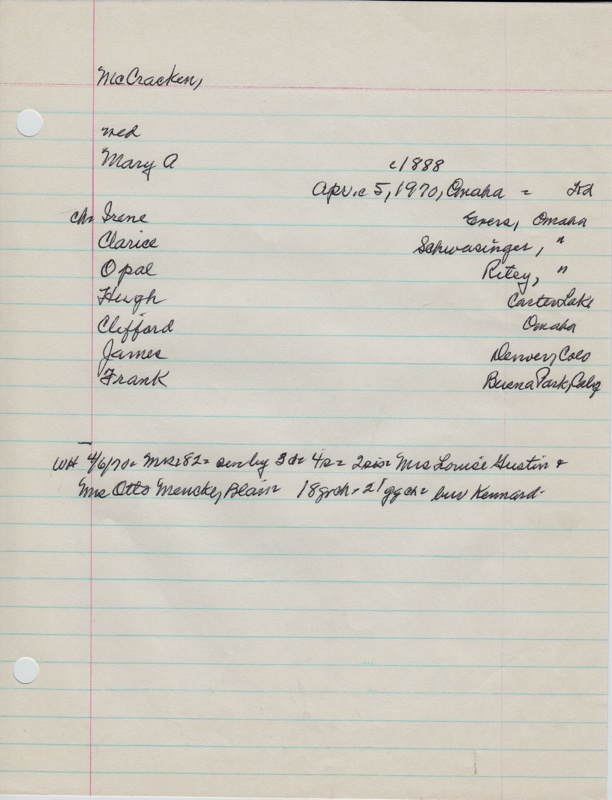 McCracken,
med
Mary A c1888
Apr. c 5, 1970, Omaha =
ch= Irene Evers, Omaha
Clarice Schwasinger, "
Opal Riley, "
Hugh Carter Lake
Clifford Omaha
James Denver, Colo
Frank Buena Park, Calif
WH 4/6/70= Mrs= 82= sur by 3d= 4s= 2sis= Mrs Louise Gustin &
Mrs Otto Mencke, Blair= 18 grch= 21 ggch= bur Kennard-